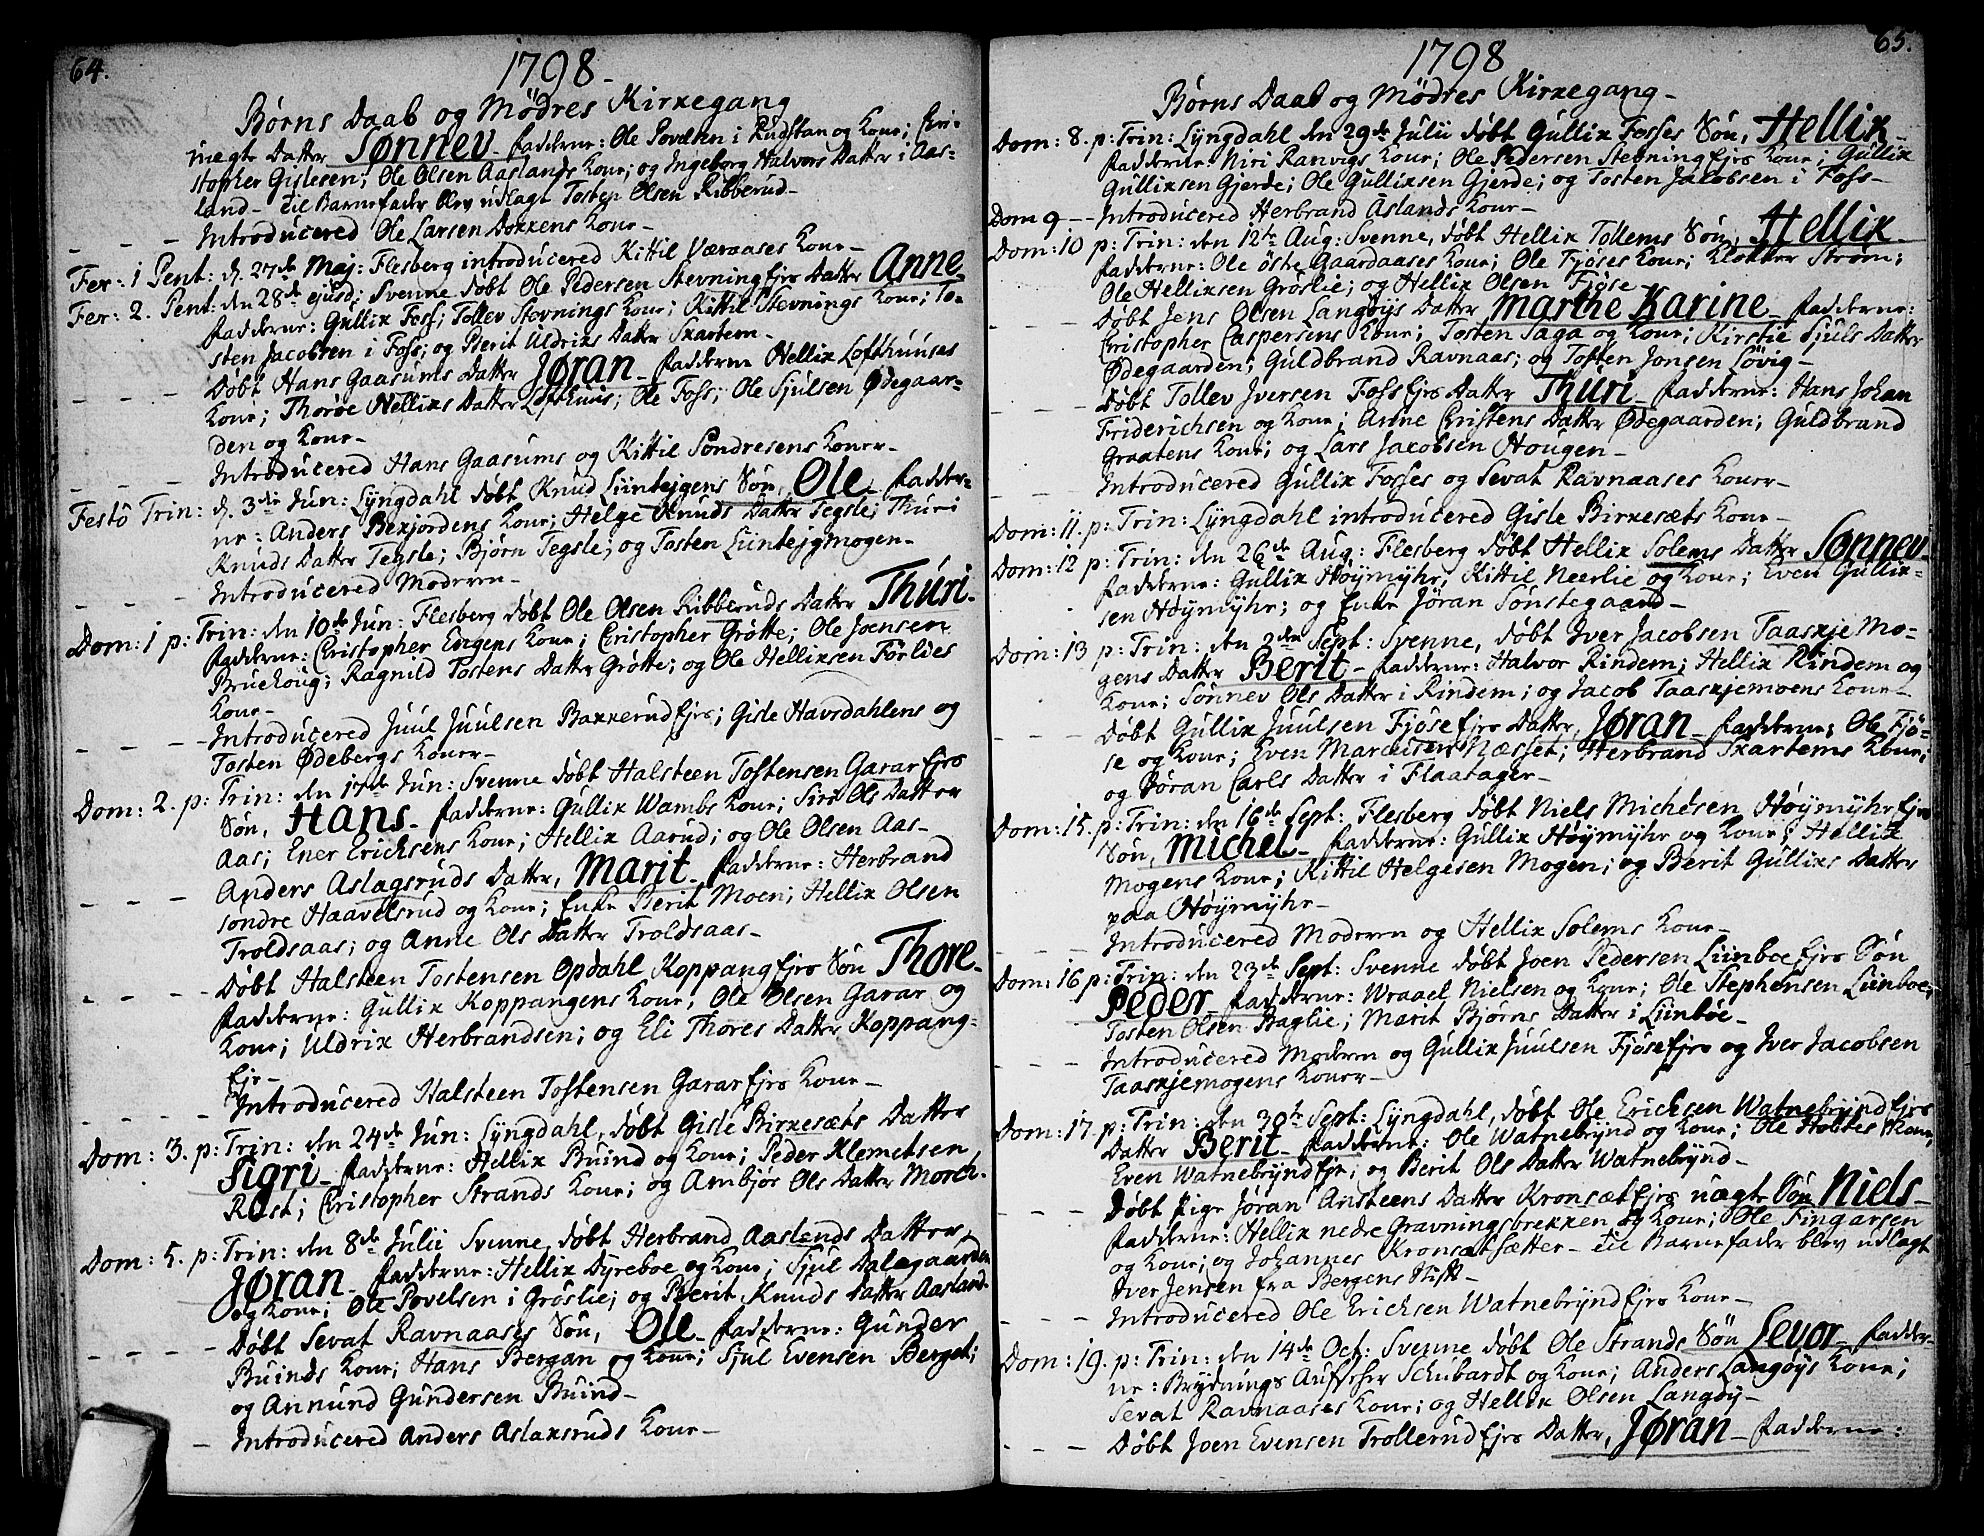 64.
1798
Børns Daab og Mödres Kirkegang
uægte Datter Sønnev_ fadderne: Ole Povelsen i Rudstan og Kone; Chri-
stopher Gislesen; Ole Olsen Aaslands Kone; og Ingeborg Halvors Datter i Aas-
land_ til Barnefader blev udlagt Tosten Olsen Ribberud_
_ _ _ Introducered Ole Larsen Dokkens Kone_
Fer: 1 Pent: d. 27de Maj: Flesberg introducered Kittil Væraases Kone_
Fer: 2. Pent: den 28de ejusd: Svenne döbt Ole Pedersen Stevningejes Datter Anne_
fadderne: Gullik Foss; Tollev Stevnings Kone; Kittil Stevnings Kone; To-
sten Jacobsen i Foss; og Berit Uldriks Datter Skartem_
_ _ _ Døbt Hans Gaasums Datter Jøran_ fadderne Hellik Lofthuuses
Kone; Thorøe Helliks Datter Lofthuus; Ole Foss; Ole Sjulsen Ødegaar-
den og Kone_
_ _ _ Introducered Hans Gaasums og Kittil Sondresens Koner_
Festô Trin: d. 3die Jun: Lÿngdahl döbt Knud Liintejgens Søn, Ole_ fadder-
ne: Anders Bekjordens Kone; Helge Knuds Datter Tegsle; Thuri
Knuds Datter Tegsle; Bjørn Tegsle; og Tosten Liintejgmogen_
_ _ _ Introducered Moderen_
Dom: 1 p: Trin: den 10de Jun: Flesberg döbt Ole Olsen Ribberuds Datter Thuri_
fadderne: Christopher Engens Kone; Christopher Grötte; Ole Joensen
Bruehoug; Ragnild Tostens Datter Grötte; og Ole Helliksen Förlies
Kone_
_ _ _ Introducered Juul Juulsen Bakkerudejes; Gisle Havrdahlens og
Tosten Ødebergs Koner_
Dom: 2. p: Trin: den 17de Jun: Svenne döbt Halsteen Tostensen Gararejes
Søn, Hans_ fadderne: Gullik Wambs Kone; Siri Ols Datter
Aas; Ener Ericksens Kone; Hellik Aarud; og Ole Olsen Aas_
_ _ _ Anders Aslagsruds Datter, Marit_ fadderne: Herbrand
söndre Haavelsrud og Kone; Enke Berit Moen; Hellik Olsen
Troldsaas; og Anne Ols Datter Troldsaas_
_ _ _ Døbt Halsteen Tostensen Opdahl Koppangejes Søn Thore_
fadderne: Gullik Koppangens Kone; Ole Olsen Garar og
Kone; Uldrik Herbrandsen; og Eli Thores Datter Koppang-
eje_
_ _ _ Introducered Halsteen Tostensen Gararejes Kone_
Dom: 3. p: Trin: den 24de Jun: Lÿngdahl, döbt Gisle Birkesæts Datter
Sigri_ fadderne: Hellik Buind og Kone; Peder Klemetsen
Rust; Christopher Strands Kone; og Ambjör Ols Datter Morch_
Dom: 5. p: Trin: den 8de Julii Svenne, döbt Herbrand Aaslands Datter,
Jøran_ fadderne: Hellik Dÿreboe og Kone; Sjul Dalsgaarden
og Kone; Ole Povelsen i Gröslie; og Berit Knuds Datter Aasland_
_ _ _ Døbt Sevat Ravnaases Søn, Ole_ fadderne: Gunder
Buinds Kone; Hans Bergan og Kone; Sjul Evensen Berget;
og Annund Gundersen Buind_
_ Introducered Anders Aslaksruds Kone_
65.
1798
Børns Daab og Mödres Kirkegang_
Dom: 8. p: Trin: Lÿngdahl den 29de Julii döbt Gullik Fosses Søn, Hellik_
fadderne Niri Ranvigs Kone; Ole Pedersen Stebningejes Kone; Gullik
Gulliksen Gjerde; Ole Gulliksen Gjerde; og Tosten Jacobsen i Foss_
Dom 9 _ _ Introducered Herbrand Aslands Kone_
Dom: 10 p: Trin: den 12te Aug: Svenne, döbt Hellik Tollems Søn, Hellik_
fadderne: Ole öste Gaardaases Kone; Ole Fjöses Kone; Klokker Ström;
Ole Helliksen Gröslie; og Hellik Olsen Fjöse_
_ _ _ Døbt Jens Olsen Langöÿs Datter Marthe Karine_ fadderne:
Christopher Caspersens Kone; Tosten Saga og Kone; Kirstie Sjuls Datter
Ødegaarden; Guldbrand Ravnaas; og Tosten Jonsen Lövig_
_ _ _ Døbt Tollev Iversen Fossejes Datter Thuri_ fadderne: Hans Johan
Friderichsen og Kone; Anne Christens Datter Ødegaarden; Guldbrand
Graatens Kone; og Lars Jacobsen Hougen_
_ _ Introducered Gullik Fosses og Sevat Ravnaases Koner_
Dom: 11. p: Trin: Lÿngdahl introducered Gisle Birkesæts Kone_
Dom: 12 p: Trin: den 26de Aug: Flesberg döbt Hellik Solems Datter Sønnev_
fadderne: Gullik Höÿmÿhr; Kittil Neerlie og Kone; Even Gullik-
sen Höÿmÿhr; og Enke Jöran Sönstegaard_
Dom: 13 p: Trin: den 2den Sept: Svenne, döbt Iver Jacobsen Taaskjemo-
gens Datter Berit_ fadderne: Halvor Rindem; Hellik Rindem og
Kone; Sönnev Ols Datter i Rindem; og Jacob Taaskjemoens Kone_
_ _ _ Døbt Gullik Juulsen Fjöseejes Datter, Jøran_ fadderne; Ole Fjö-
se og Kone; Even Næsset; Herbrand Skartems Kone;
og Jöran Carls Datter i Flaatager_
Dom: 15. p: Trin: den 16de Sept: Flesberg döbt Niels Michelsen Höÿmÿhreje
Søn, Michel_ fadderne: Gullik Höÿmÿhr og Kone; Hellik
Mogens Kone; Kittil Helgesen Mogen; og Berit Gulliks Datter
paa Höÿmÿhr_
_ _ _ Introducered Moderen og Hellik Solems Kone_
Dom: 16 p: Trin: den 23de Sept: Svenne döbt Joen Pedersen Liinboeejes Søn
Peder_ fadderne: Wraael Nielsen og Kone; Ole Stephensen Liinboe;
Tosten Olsen Baglie; Marit Bjørns Datter i Liinböe_
_ _ _ Introducered Moderen og Gullik Juulsen Fjöseejes og Iver Jacobsen
Taaskjemogens Koner_
Dom: 17. p: Trin: den 30te Sept: Lÿngdahl, döbt Ole Ericksen Watnebrÿndejes
Datter Berit_ fadderne: Ole Watnebrÿnd og Kone; Ole Holtes Kone;
Even Watnebrÿndeje; og Berit Ols Datter Watnebrÿnd_
_ _ _ Døbt Pige Jöran Ansteens Datter Kronsætejes uægte Søn Niels_
fadderne: Hellik nedre Gravningsbrekken og Kone; Ole Fingarsen
og Kone; og Johannes Kronsætsætter_ til Barnefader blev udlagt
Iver Jensen fra Bergens Stift_
_ _ _ Introducered Ole Ericksen Watnebrÿndejes Kone_
Dom: 19. p: Trin: den 14de Oct: Svenne döbt Ole Strands Søn Levor_ fadder-
ne: Brÿdnings Aufseher Schubardt og Kone; Anders Langöÿs Kone;
Sevat Ravnaases Kone; og Hellik Olsen Langöÿ_
_ _ _ Døbt Joen Evensen Trollerudejes Datter, Jøran_ fadderne: